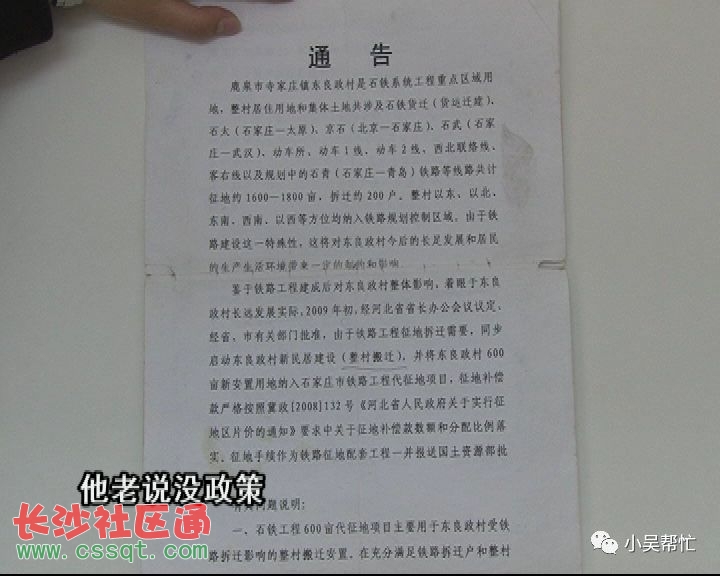 通 告
鹿泉市寺家庄镇东良政村是石铁系统工程重点区域用
地，整村居住用地和集体土地共涉及石铁货迁（货运迁建）、
石太（石家庄—太原）、京石（北京—石家庄）、石武（石家
庄—武汉）、动车所、动车1线、动车2线、西北联络线、
客右线以及规划中的石青（石家庄—青岛）铁路等线路共计
征地约1600—1800亩，拆迁约200户。整村以东、以北、
东南、西南、以西等方位均纳入铁路规划控制区域。由于铁
路建设这一特殊性，这将对东良政村今后的长足发展和居民
的生产生活环境带来一定的制约和影响。
鉴于铁路工程建成后对东良政村整体影响，着眼于东良
政村长远发展实际，2009年初，经河北省省长办公会议议定、
经省、市有关部门批准，由于铁路工程征地拆迁需要，同步
启动东良政村新民居建设（整村搬迁），并将东良政村600
亩新安置用地纳入石家庄市铁路工程代征地项目，征地补偿
款严格按照冀政[2008]132号《河北省人民政府关于实行征
地区片价的通知》要求中关于征地补偿款数额和分配比例落
实、征地手续作为铁路征地配套工程一并报送国土资源部批
问题说明：
他老说没政策
一、石铁工程600亩代征地项目主要用于东良政村受铁
路拆迁影响的整村搬迁安置。在充分满足铁路拆迁户和整村
长沙社区通
www.cssqt.com
小吴帮忙